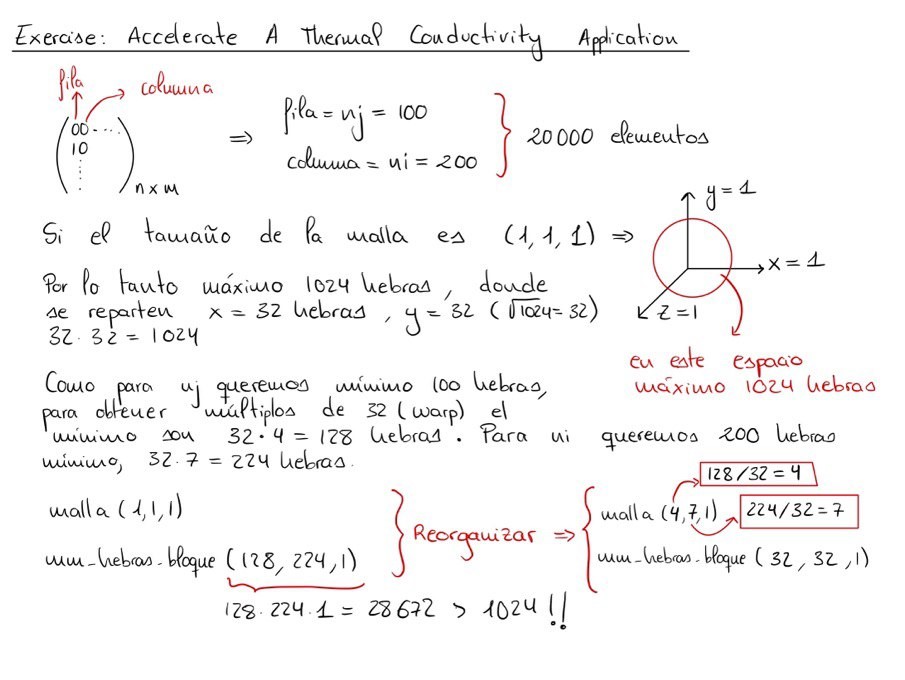 Exercise: Accelerate A Thermal Conductivity Application
fila
columna
00 ....
10
n x m
⇒
fila = nj = 100
columna = ni = 200
20000 elementos
Si el tamaño de la malla es (1, 1, 1) ⇒
y = 1
x = 1
z = 1
Por lo tanto máximo 1024 hebras, donde
se reparten x = 32 hebras, y = 32 (√1024 = 32)
32 · 32 = 1024
en este espacio
máximo 1024 hebras
Como para nj queremos mínimo 100 hebras,
para obtener múltiplos de 32 (warp) el
mínimo son 32 · 4 = 128 hebras. Para ni queremos 200 hebras
mínimo, 32 · 7 = 224 hebras.
malla (1, 1, 1)
num_hebras_bloque (128, 224, 1)
128 · 224 · 1 = 28672 > 1024 !!
Reorganizar ⇒
128/32 = 4
malla (4, 7, 1)
224/32 = 7
num_hebras_bloque (32, 32, 1)